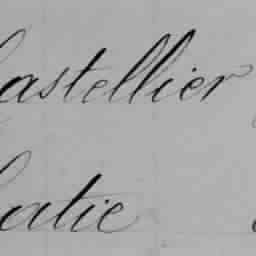 astellier
atie